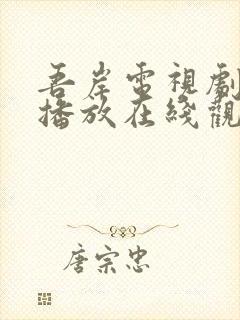 吾岸電視劇
播放在綫觀
唐宗忠